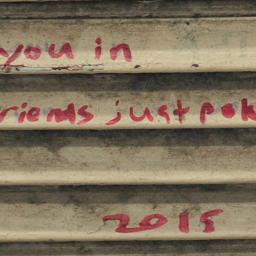 you in
riends just pok
2015